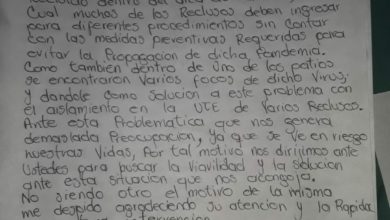 Cual muchos de los Reclusos deben ingresar
para diferentes procedimientos sin contar
con las medidas preventivas Requeridas para
evitar la Propagacion de dicha Pandemia.
Como tambien dentro de uno de los patios
se encontraron varios focos de dicho Virus;
y dandole como Solucion a este problema con
el aislamiento en la UTE de Varios Reclusos.
Ante esta Problematica que nos genera
demasiada Preocupacion, Ya que se ve en riesgo
nuestras Vidas, Por tal motivo nos dirijimos ante
Ustedes para buscar la Viavilidad y la Solucion
ante esta Situacion que nos acongoja.
No siendo otro el motivo de la misma
me despido agradeciendo su atencion y la Rapida